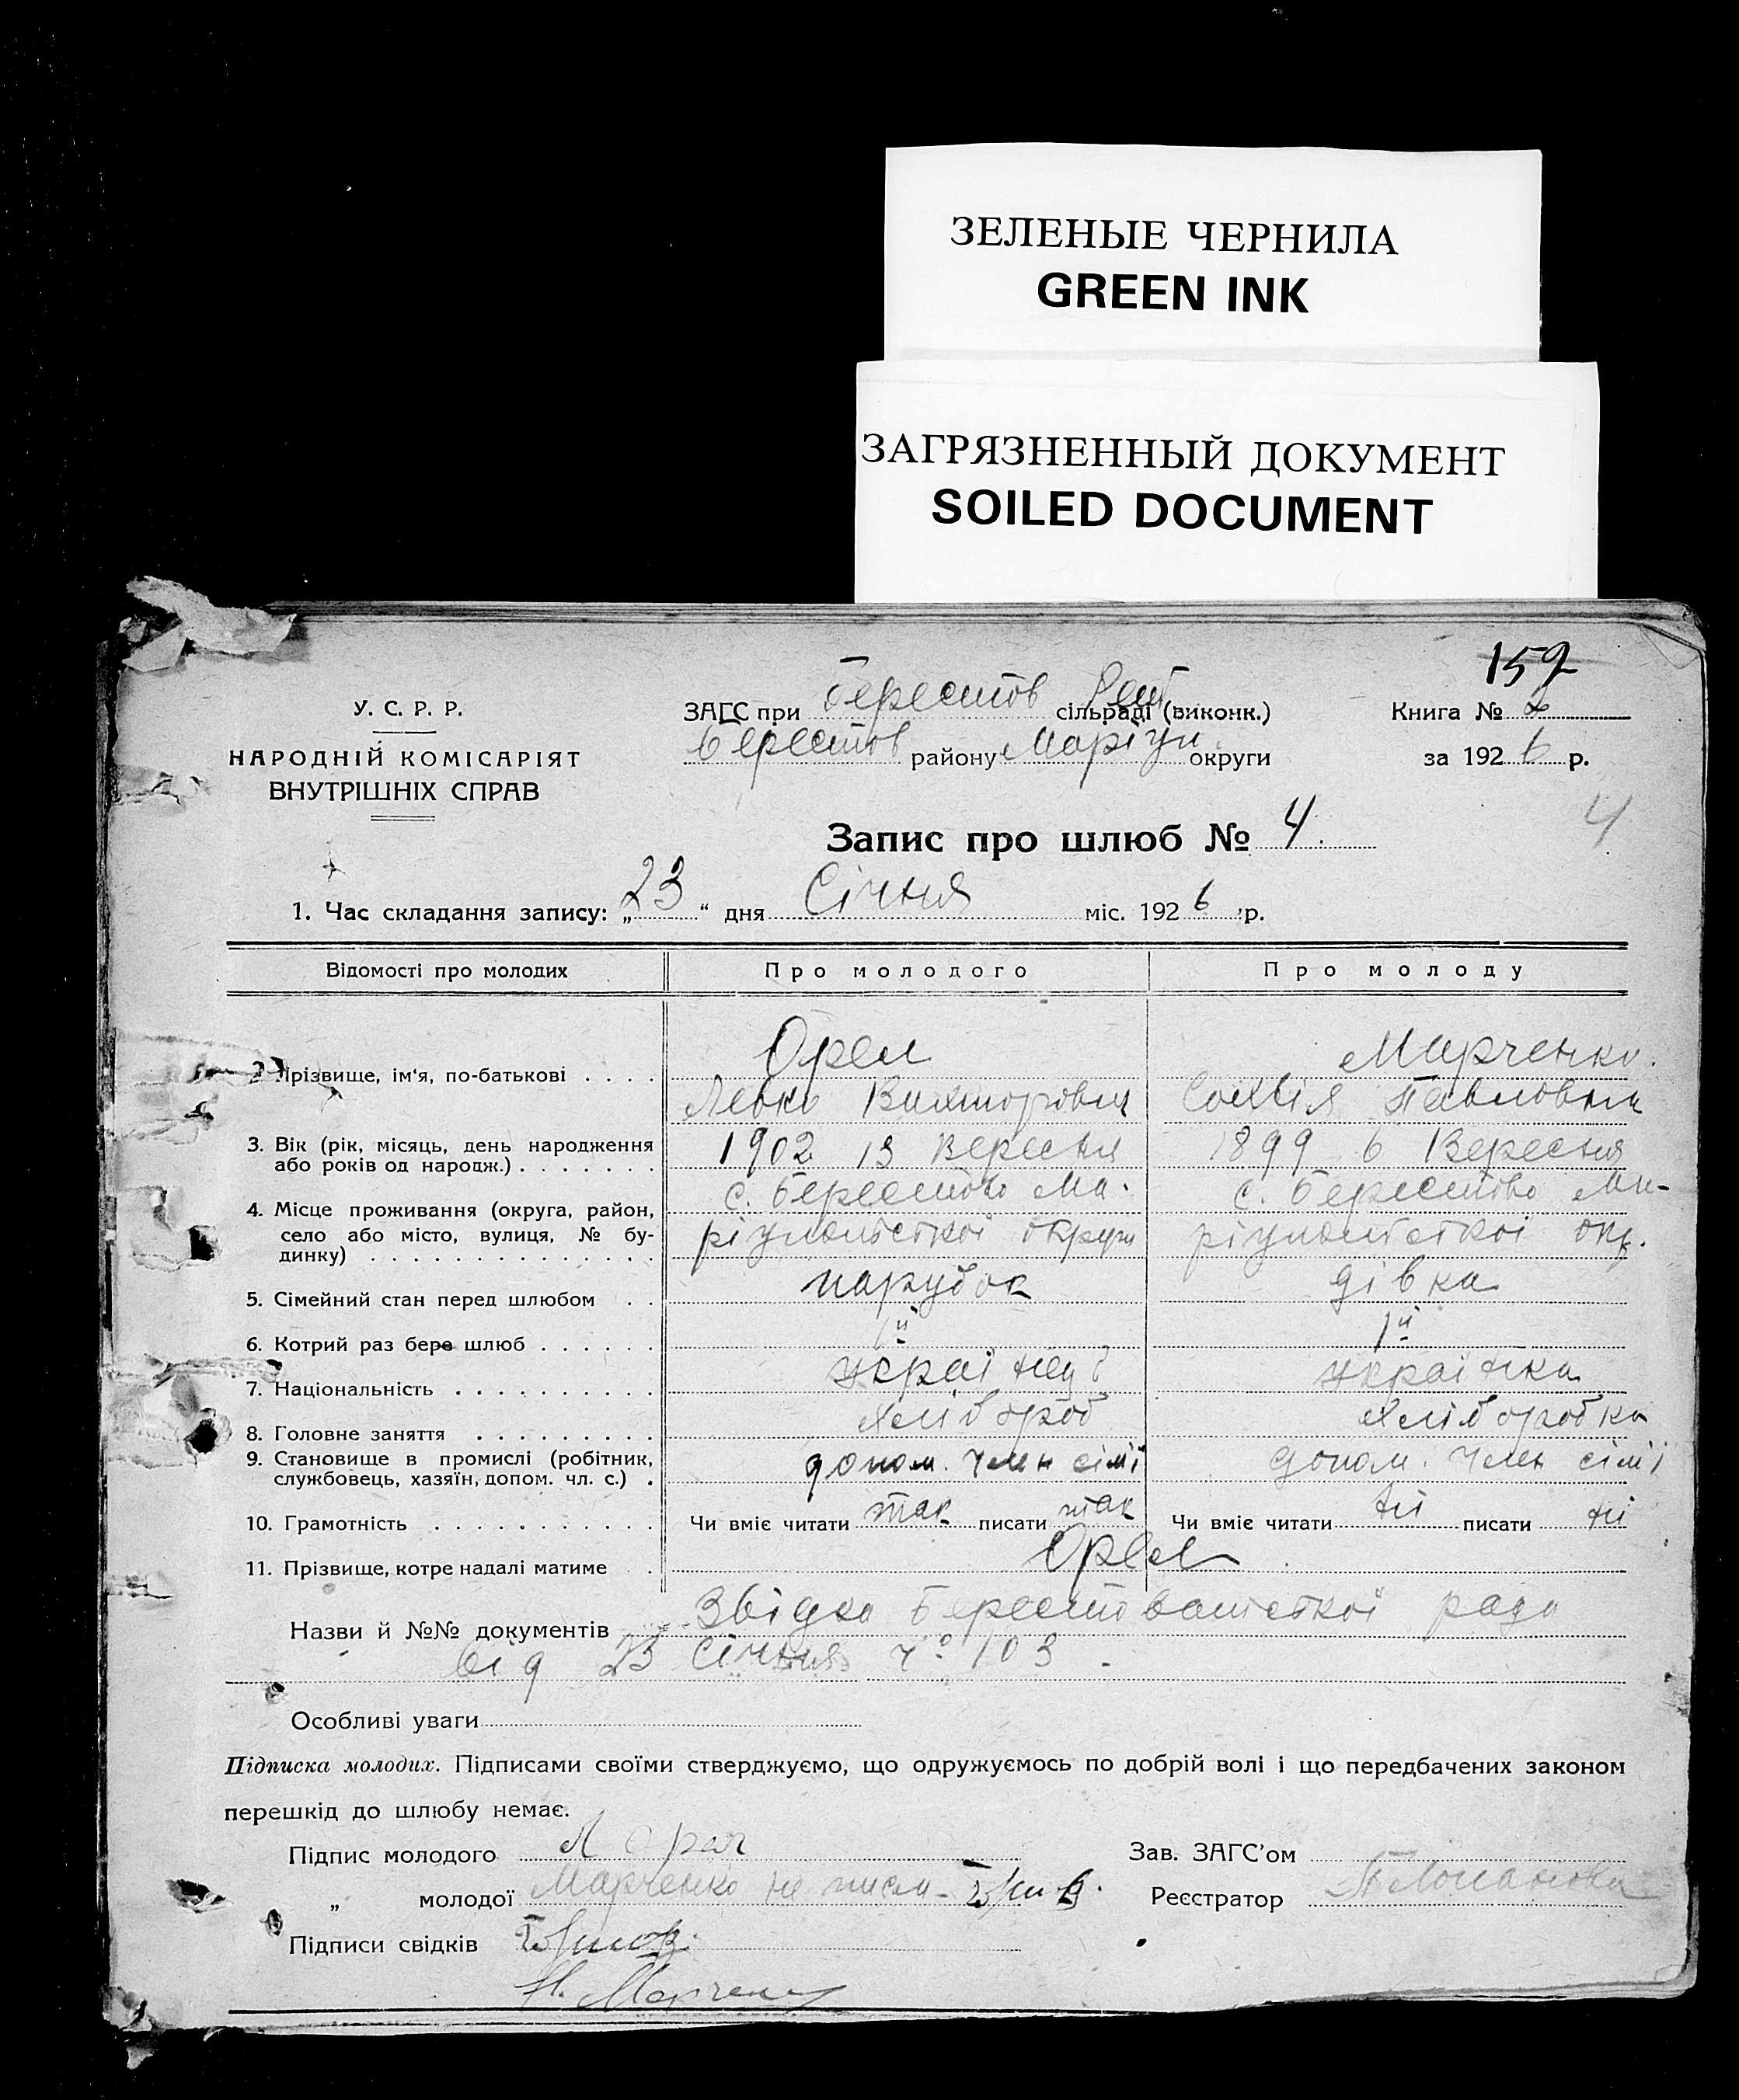 ЗЕЛЕНЫЕ ЧЕРНИЛА
GREEN INK
ЗАГРЯЗНЕННЫЙ ДОКУМЕНТ
SOILED DOCUMENT
152
У. С. Р. Р.
НАРОДНІЙ КОМІСАРІЯТ
ВНУТРІШНІХ СПРАВ
ЗАГС при Берестов сільраді (виконк.)
Берестов району Маріуп округи
Книга № 2
за 1926 р.
Запис про шлюб № 4.
4
1. Час складання запису: „23“ дня Січня міс. 1926 р.
Відомості про молодих Про молодого Про молоду
2. Прізвище, ім'я, по-батькові . . . . Орел Марченко.
Левко Вихторович Сохвія Павловна
3. Вік (рік, місяць, день народження або років од народж.) . . . . . . . 1902 13 Вересня 1899 6 Вересня
4. Місце проживання (округа, район, село або місто, вулиця, № будинку) . . . . . . . . . . . . . с. Берестово Ма- с. Берестово Ма-
ріупольської округи ріупольської окр.
5. Сімейний стан перед шлюбом . . парубок дівка
6. Котрий раз бере шлюб . . . . . . 1й 1й
7. Національність . . . . . . . . . українець українка
8. Головне заняття . . . . . . . . . хлібороб хліборобка
9. Становище в промислі (робітник, службовець, хазяїн, допом. чл. с.) . допом. член сімї допом. член сімї
10. Грамотність . . . . . . . . . . . Чи вміє читати так писати так Чи вміє читати ні писати ні
11. Прізвище, котре надалі матиме . Орел
Назви й №№ документів Звідка Берестовальської ради
від 23 Січня ч. 103
Особливі уваги
Підписка молодих. Підписами своїми стверджуємо, що одружуємось по добрій волі і що передбачених законом
перешкід до шлюбу немає.
Підпис молодого Л Орел Зав. ЗАГС'ом
„ молодої Марченко не писм- Реєстратор
Підписи свідків
Н. Марченко